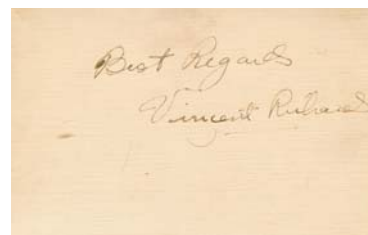 Best Regards
Vincent Richards